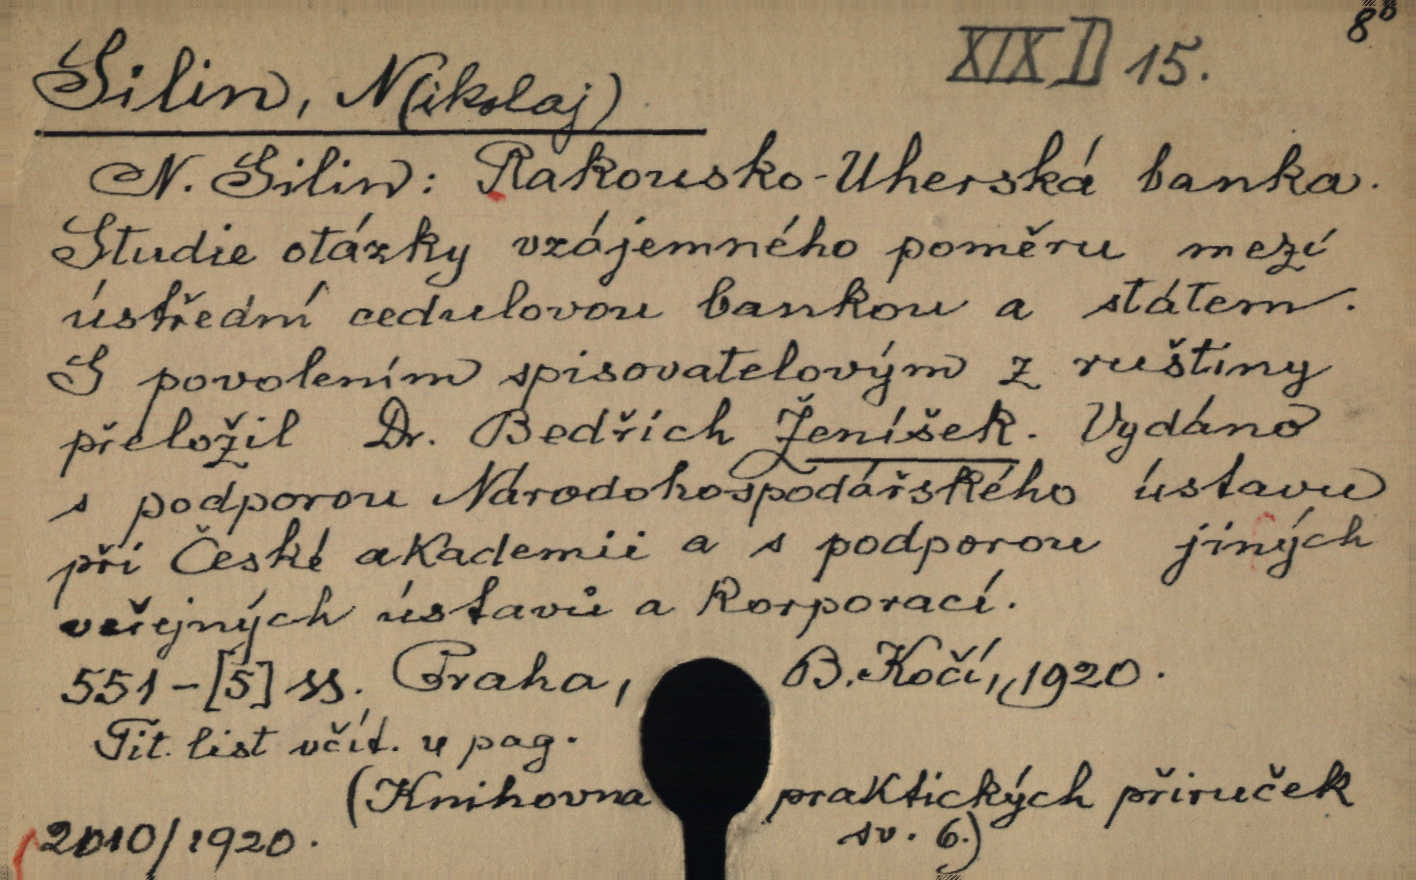 8°
XIX D 15.
Silin, N(ikolaj)
N. Silin: Rakousko-Uherská banka.
Studie otázky vzájemného poměru mezi
ústřední cedulovou bankou a státem.
S povolením spisovatelovým z ruštiny
přeložil Dr. Bedřich Ženíšek. Vydáno
s podporou Národohospodářského ústavu
při České akademii a s podporou jiných
veřejných ústavů a korporací.
551-[5] ss. Praha, B. Kočí, 1920.
Tit. list včít. v pag.
(Knihovna praktických příruček
sv. 6.)
2010/1920.